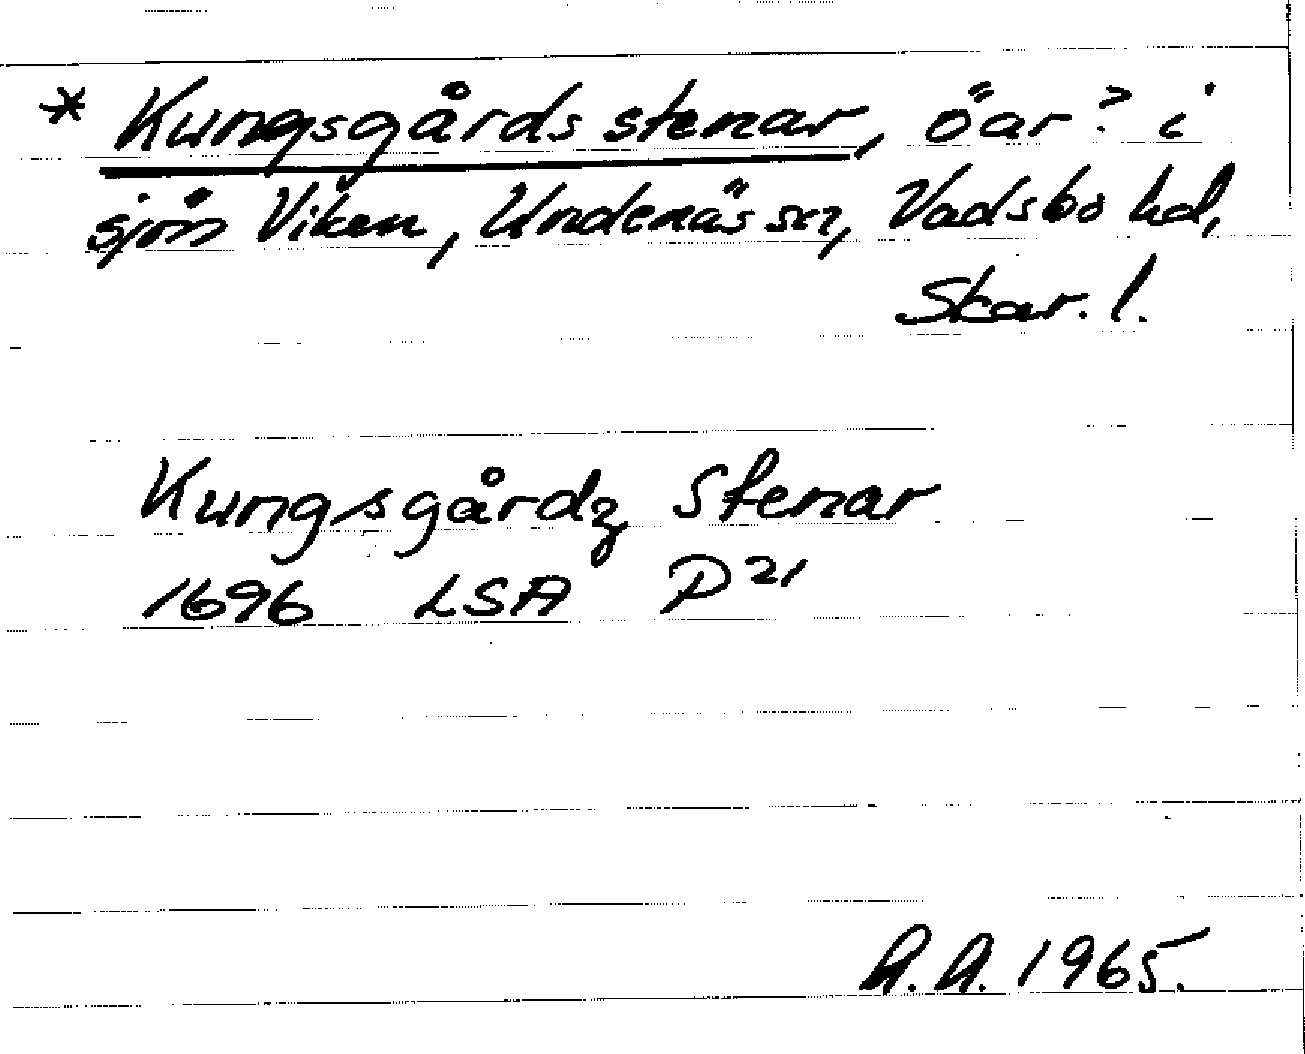 * Kungsgårdsstenar, öar? i
sjön Viken, Undenäs sn, Vadsbo hd,
Skar. l.
Kungsgårdz Stenar
1696 LSA P 21
A.A. 1965.